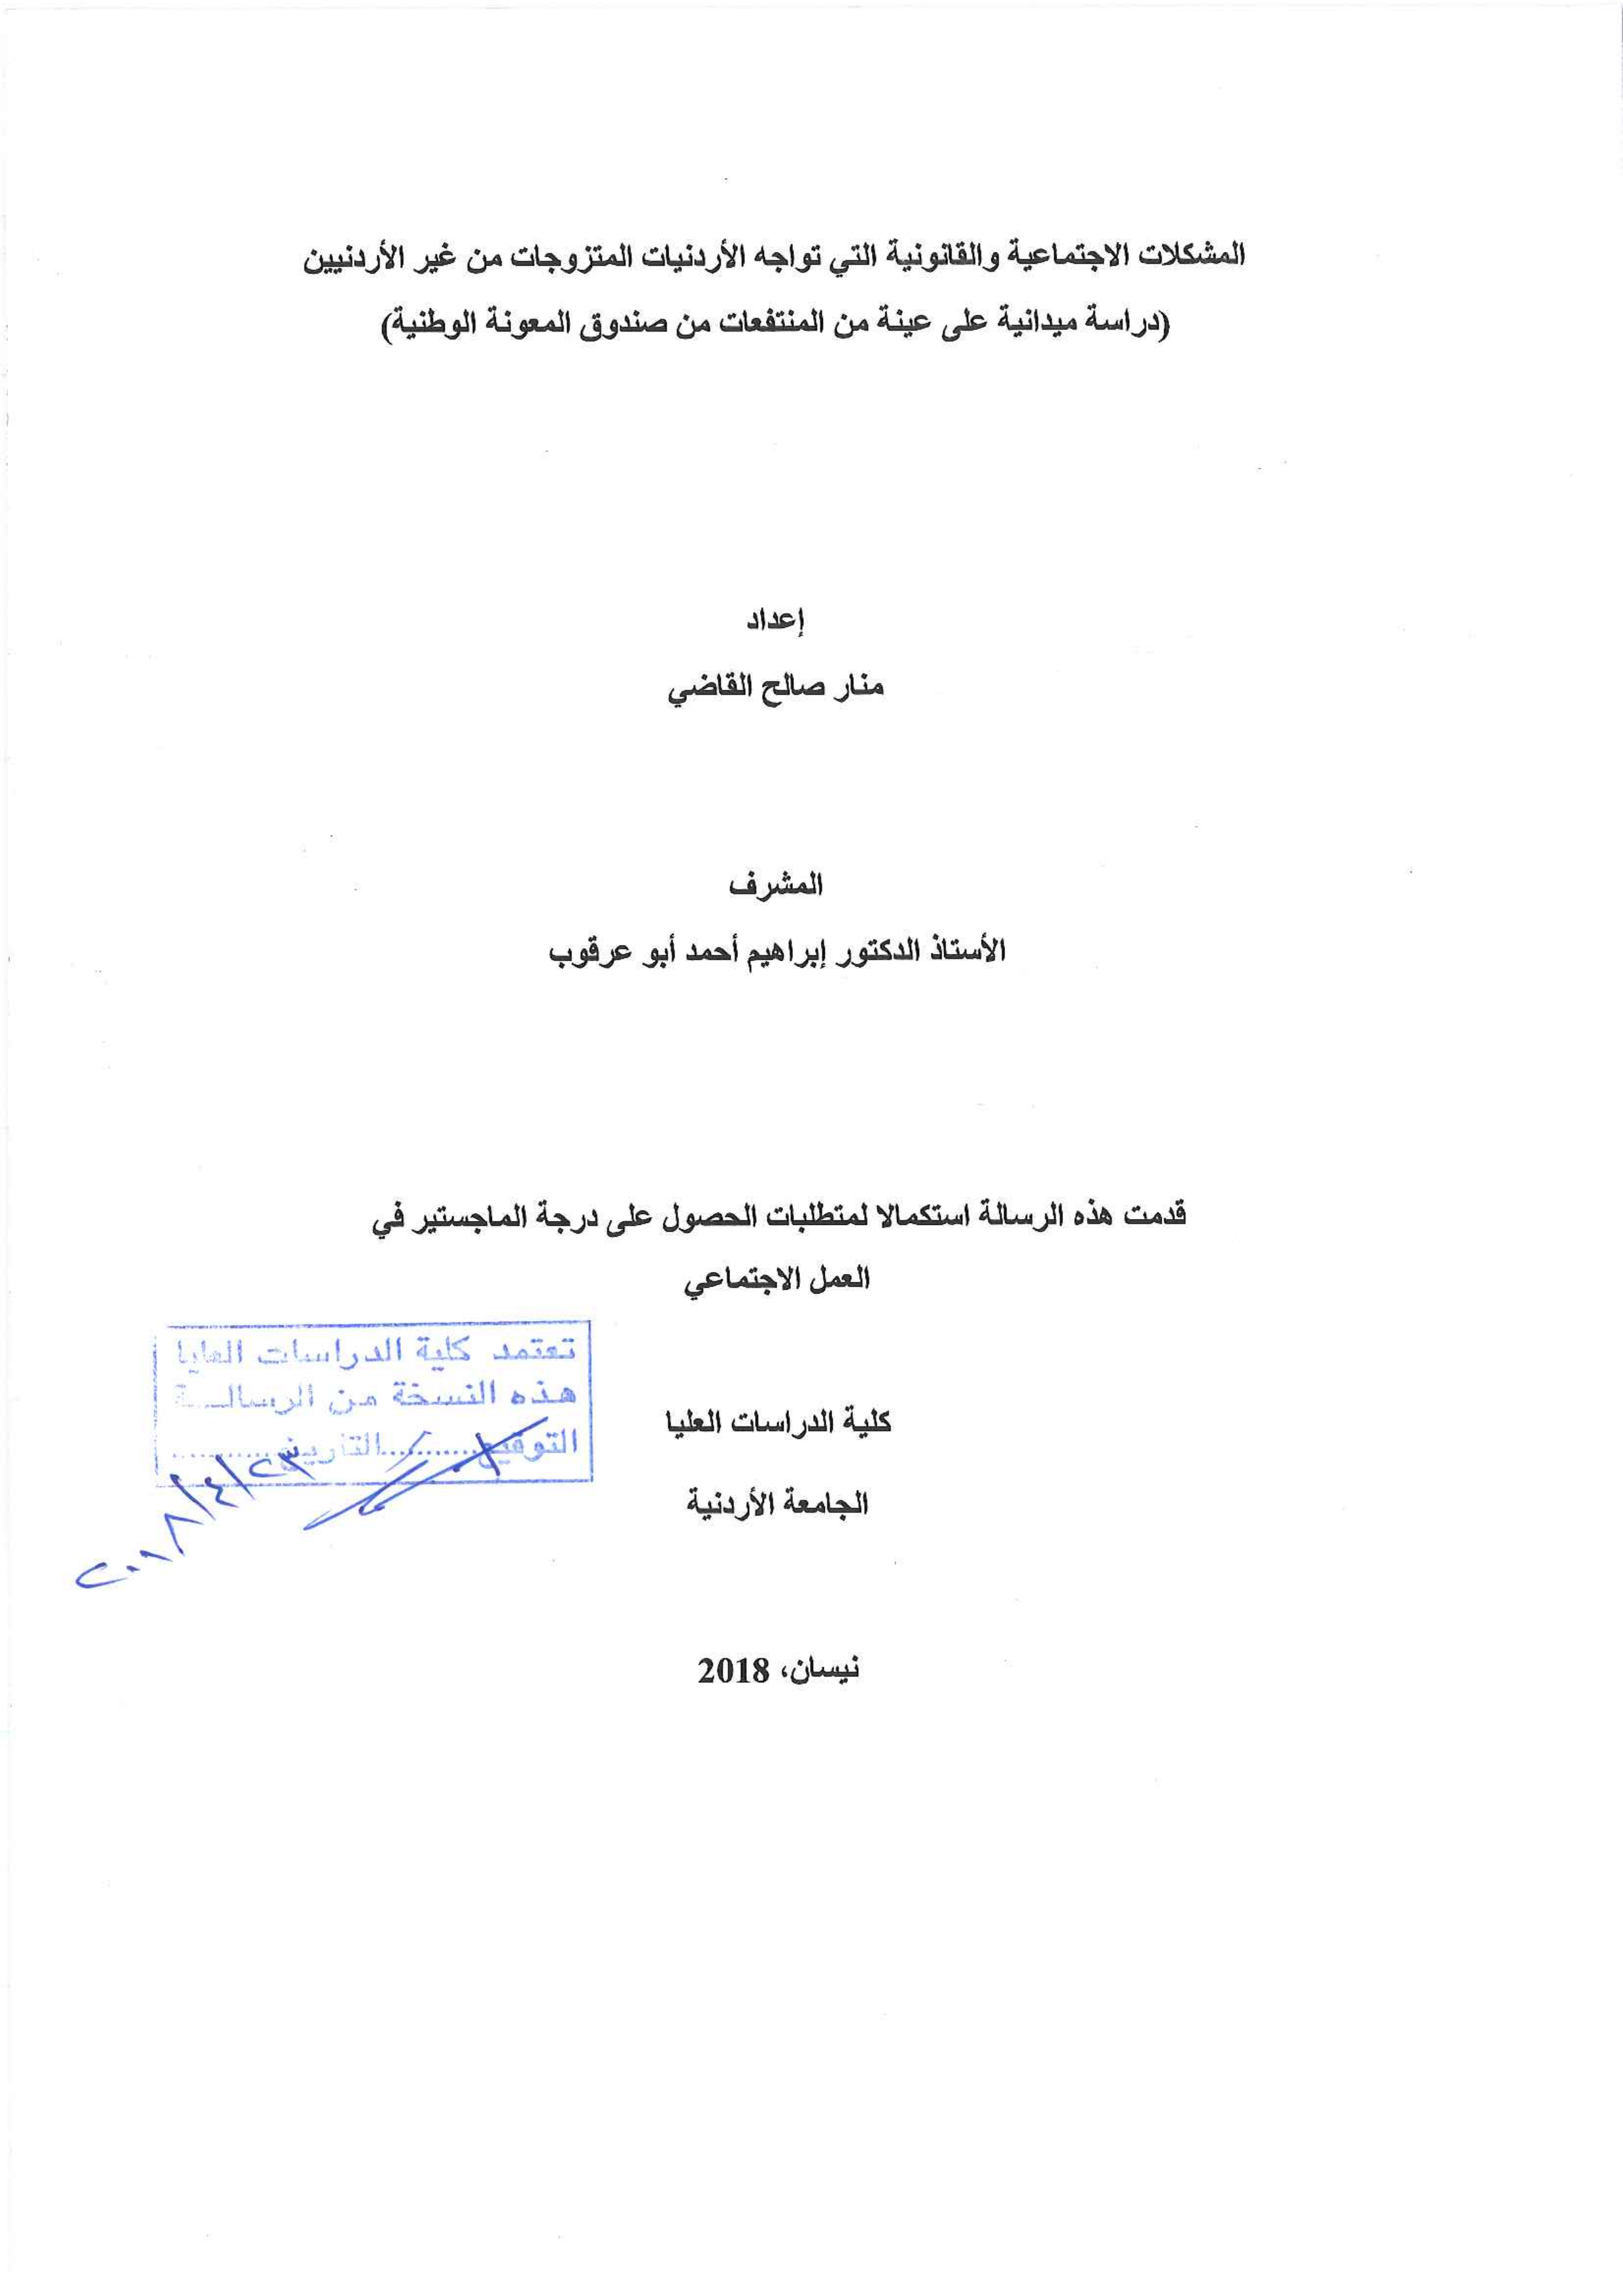 المشكلات الاجتماعية والقانونية التي تواجه الأردنيات المتزوجات من غير الأردنيين
(دراسة ميدانية على عينة من المنتفعات من صندوق المعونة الوطنية)
إعداد
منار صالح القاضي
المشرف
الأستاذ الدكتور إبراهيم أحمد أبو عرقوب
قدمت هذه الرسالة استكمالا لمتطلبات الحصول على درجة الماجستير في
العمل الاجتماعي
تعتمد كلية الدراسات العليا
هذه النسخة من الرسالـــة
التوقيع...........التاريخ...........
٢٠١٨/٤/٢٣
كلية الدراسات العليا
الجامعة الأردنية
نيسان، 2018